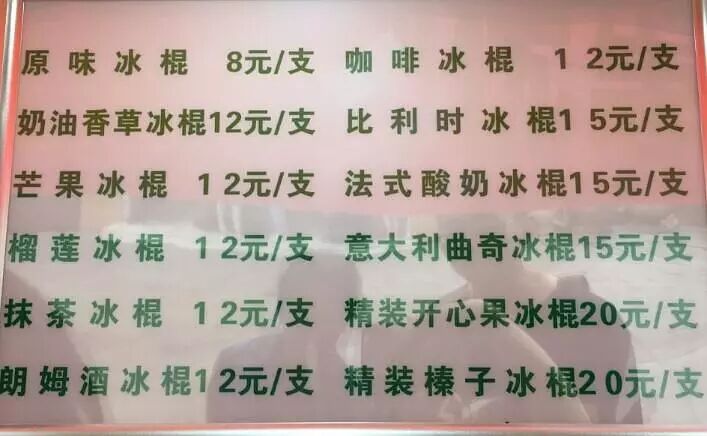 原味冰棍 8元/支 咖啡冰棍 12元/支
奶油香草冰棍12元/支 比利时冰棍15元/支
芒果冰棍 12元/支 法式酸奶冰棍15元/支
榴莲冰棍 12元/支 意大利曲奇冰棍15元/支
抹茶冰棍 12元/支 精装开心果冰棍20元/支
朗姆酒冰棍12元/支 精装榛子冰棍20元/支